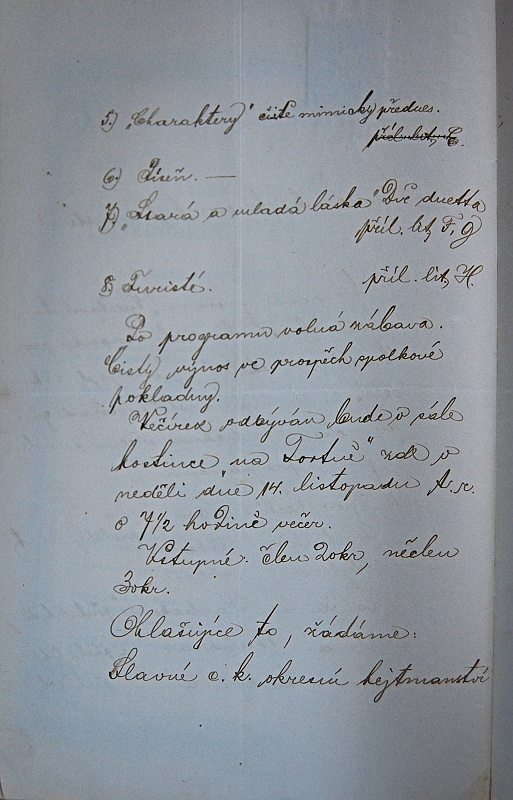 5.) „Charaktery" čistě mimický přednes.
příl. lit. E.
6.) Píseň. —
7.) „Stará a mladá láska" Dvě duetta
příl. lit. F, g
8.) Turisté. příl. lit. H.
Po programu volná zábava.
Čistý výnos ve prospěch spolkové
pokladny.
Večírek odbýván bude v sále
hostince „na Tortně" zde v
neděli dne 14. listopadu t. r.
o 7 1/2 hodině večer.
Vstupné: člen 20kr, nečlen
30kr.
Ohlašujíce to, žádáme:
Slavné c. k. okresní hejtmanství